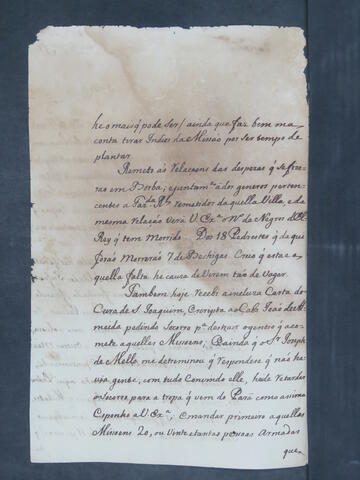 he o mais q̃ pode ser / ainda que faz bem má
conta tirar Indios da Missão por ser tempo de
plantar
Remeto as Relaçoens das despezas q̃ se fize-
rão em Borba; e juntam.te a dos generos perten-
centes a Faz.da R.l remetidos daquella Villa, e da
mesma relação verá V. Ex.a os Negros d' El
Rey q̃ tem Morrido. Dos 18 Pedrestes q̃ da qui
forão Morrerão 7 de Bechigas. Creio q̃ esta e a
quella falta he causa de virem tão de vagar.
Tambem hoje recebi a incluza Carta do
Cura de S. Joaquim, escripta ao Cabo João de Al-
meida pedindo Socorro p.a destruir o gentio q̃ aco-
mete aquellas Missoens; E ainda q̃ o S.r Joseph
de Mello me detreminou q̃ respondese q̃ não ha-
via gente, com tudo Convindo elle, hade retardar
o socorro para a tropa q̃ vem do Pará como asima
Exponho a V. Ex.a; E mandar primeiro aquellas
Missoens 20, ou vinte e tantas pessoas Armadas
que